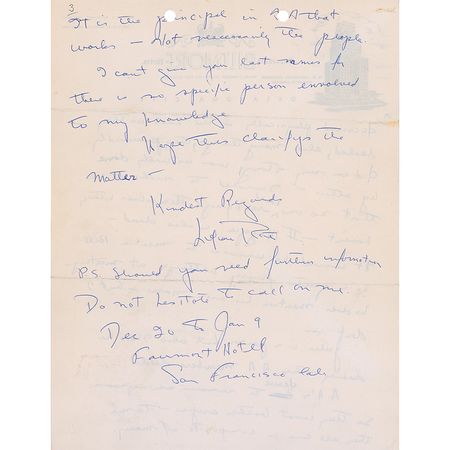 3
It is the principal in AA that
works – Not necessarily the people.
I cant give you last names for
there is no specific person envolved
to my knowledge
Hope this clarifys the
matter –
Kindest Regards
Lillian Roth
P.S. Should you need further information
Do not hesitate to call on me.
Dec 20 to Jan 9
Fairmont Hotell
San Francisco Cal.